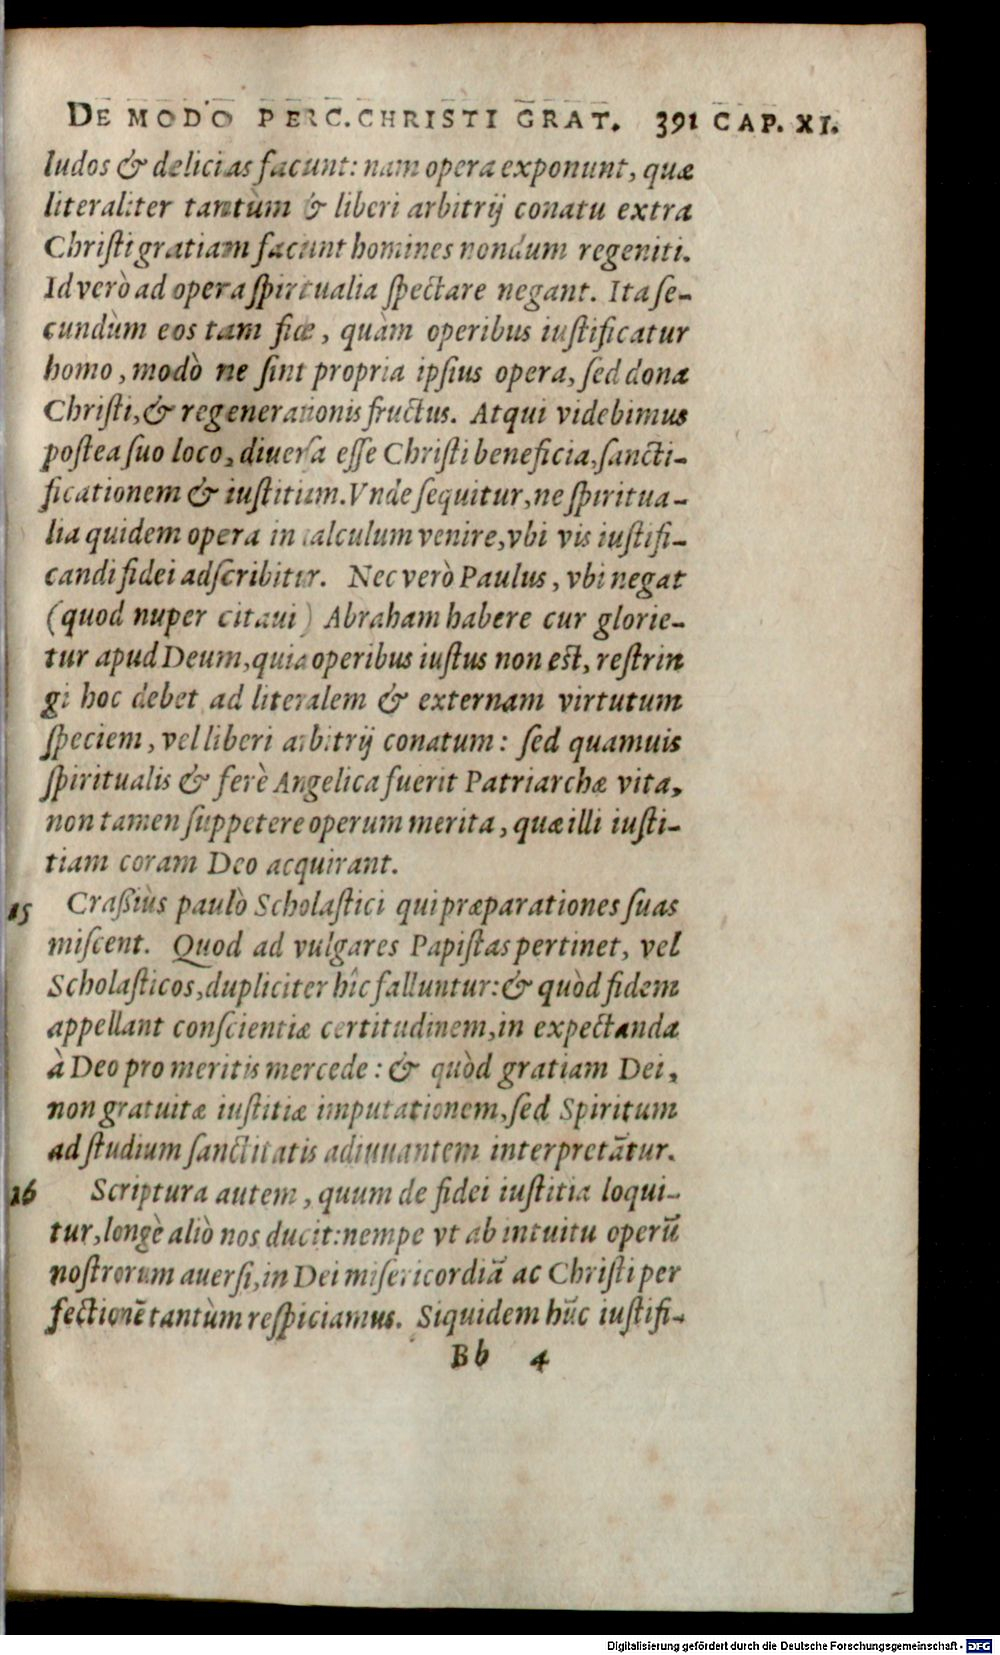 DE MODO PERC. CHRISTI GRAT. 391 CAP. XI.
ludos & delicias facunt: nam opera exponunt, quæ
literaliter tantùm & liberi arbitrij conatu extra
Christi gratiam facunt homines nondum regeniti.
Id verò ad opera spiritualia spectare negant. Ita se-
cundùm eos tam fide, quàm operibus iustificatur
homo, modò ne sint propria ipsius opera, sed dona
Christi, & regenerationis fructus. Atqui videbimus
postea suo loco, diuersa esse Christi beneficia, sancti-
ficationem & iustitiam. Vnde sequitur, ne spiritua-
lia quidem opera in calculum venire, vbi vis iustifi-
candi fidei adscribitur. Nec verò Paulus, vbi negat
(quod nuper citaui) Abraham habere cur glorie-
tur apud Deum, quia operibus iustus non est, restrin
gi hoc debet ad literalem & externam virtutum
speciem, vel liberi arbitrij conatum: sed quamuis
spiritualis & ferè Angelica fuerit Patriarchæ vita,
non tamen suppetere operum merita, quæ illi iusti-
tiam coram Deo acquirant.
15 Crassiùs paulò Scholastici qui præparationes suas
miscent. Quod ad vulgares Papistas pertinet, vel
Scholasticos, dupliciter hîc falluntur: & quòd fidem
appellant conscientiæ certitudinem, in expectanda
à Deo pro meritis mercede: & quòd gratiam Dei,
non gratuitæ iustitiæ imputationem, sed Spiritum
ad studium sanctitatis adiuuantem interpretātur.
16 Scriptura autem, quum de fidei iustitia loqui-
tur, longè aliò nos ducit: nempe vt ab intuitu operū
nostrorum auersi, in Dei misericordiā ac Christi per
fectionē tantùm respiciamus. Siquidem hūc iustifi-
Bb 4
Digitalisierung gefördert durch die Deutsche Forschungsgemeinschaft - DFG